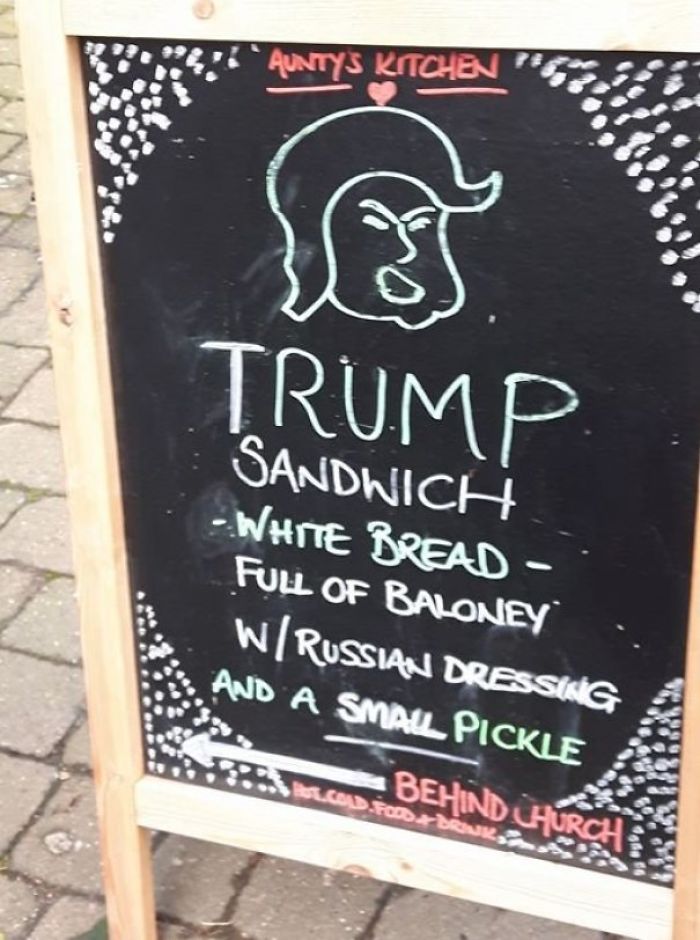 AUNTY'S KITCHEN
TRUMP
SANDWICH
- WHITE BREAD -
FULL OF BALONEY
W/RUSSIAN DRESSING
AND A SMALL PICKLE
BEHIND CHURCH
HOT. COLD. FOOD + DRINK